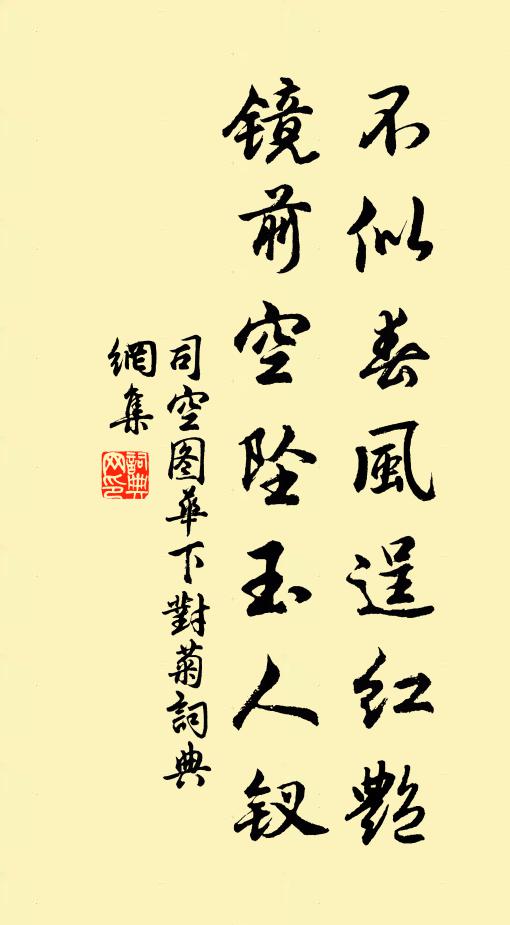 不似春風逞紅艷
鏡前空坠玉人釵
司空图華下對菊詞典
網集
詞典網印